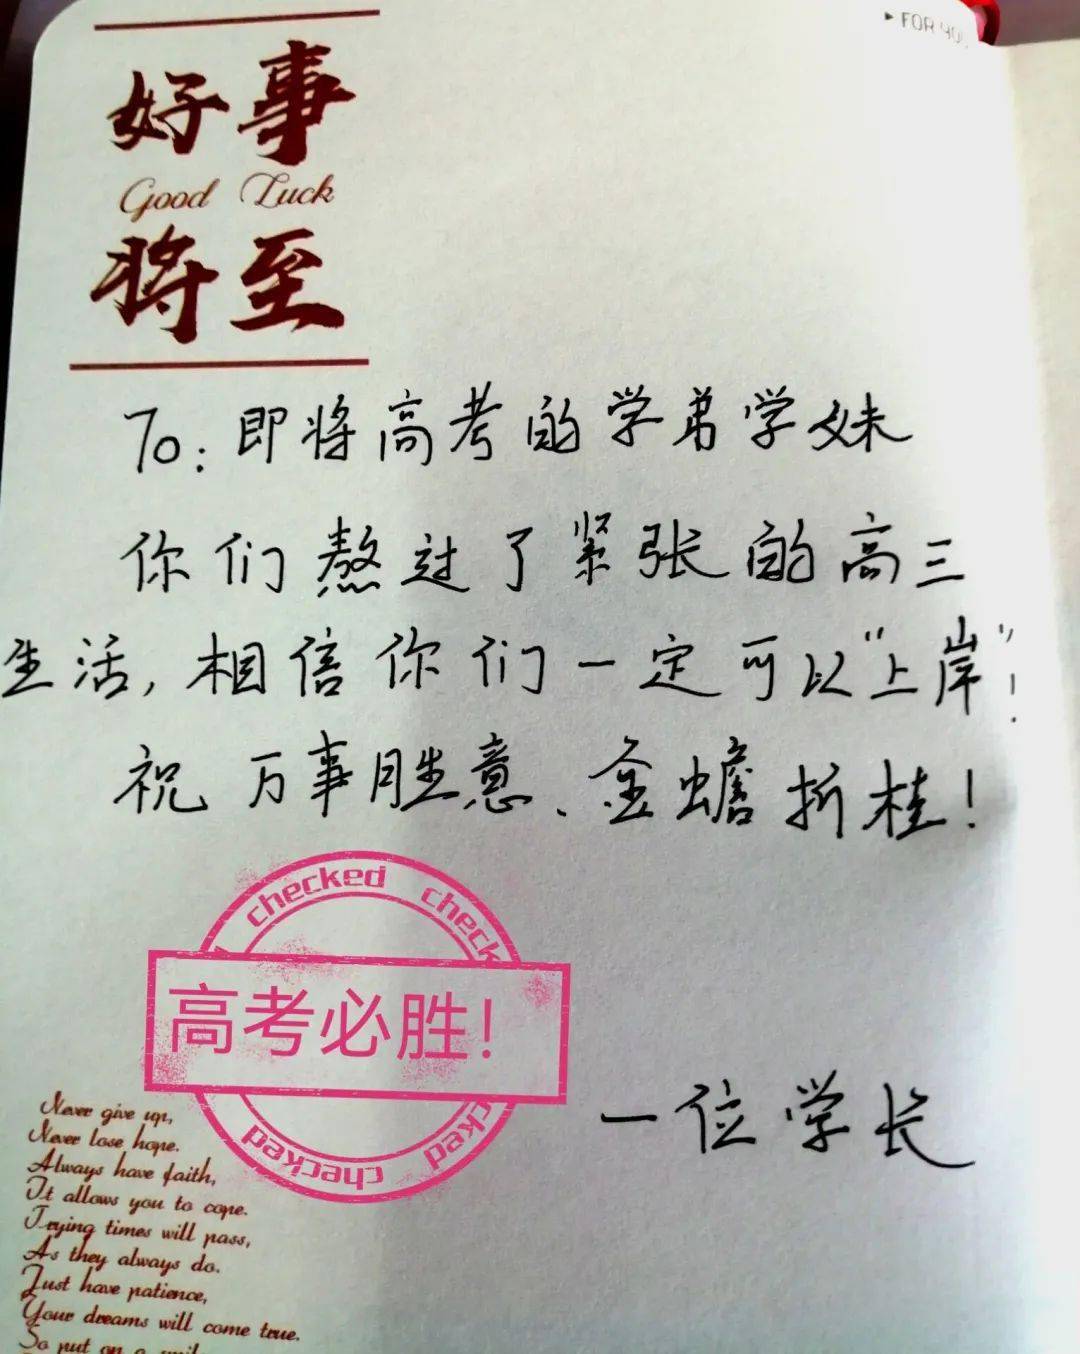 ▸ FOR YOU
好事
Good Luck
将至
To: 即将高考的学弟学妹
你们熬过了紧张的高三
生活, 相信你们一定可以"上岸"!
祝万事胜意、金蟾折桂!
checked check
高考必胜!
checked checked
一位学长
Never give up,
Never lose hope.
Always have faith,
It allows you to cope.
Trying times will pass,
As they always do.
Just have patience,
Your dreams will come true.
So put on a smil